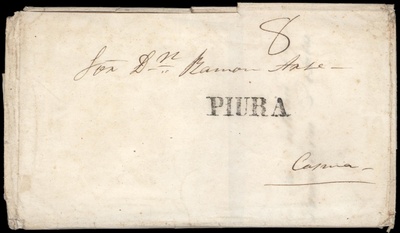 8
Sor Dn Ramon Arse
PIURA
Casma